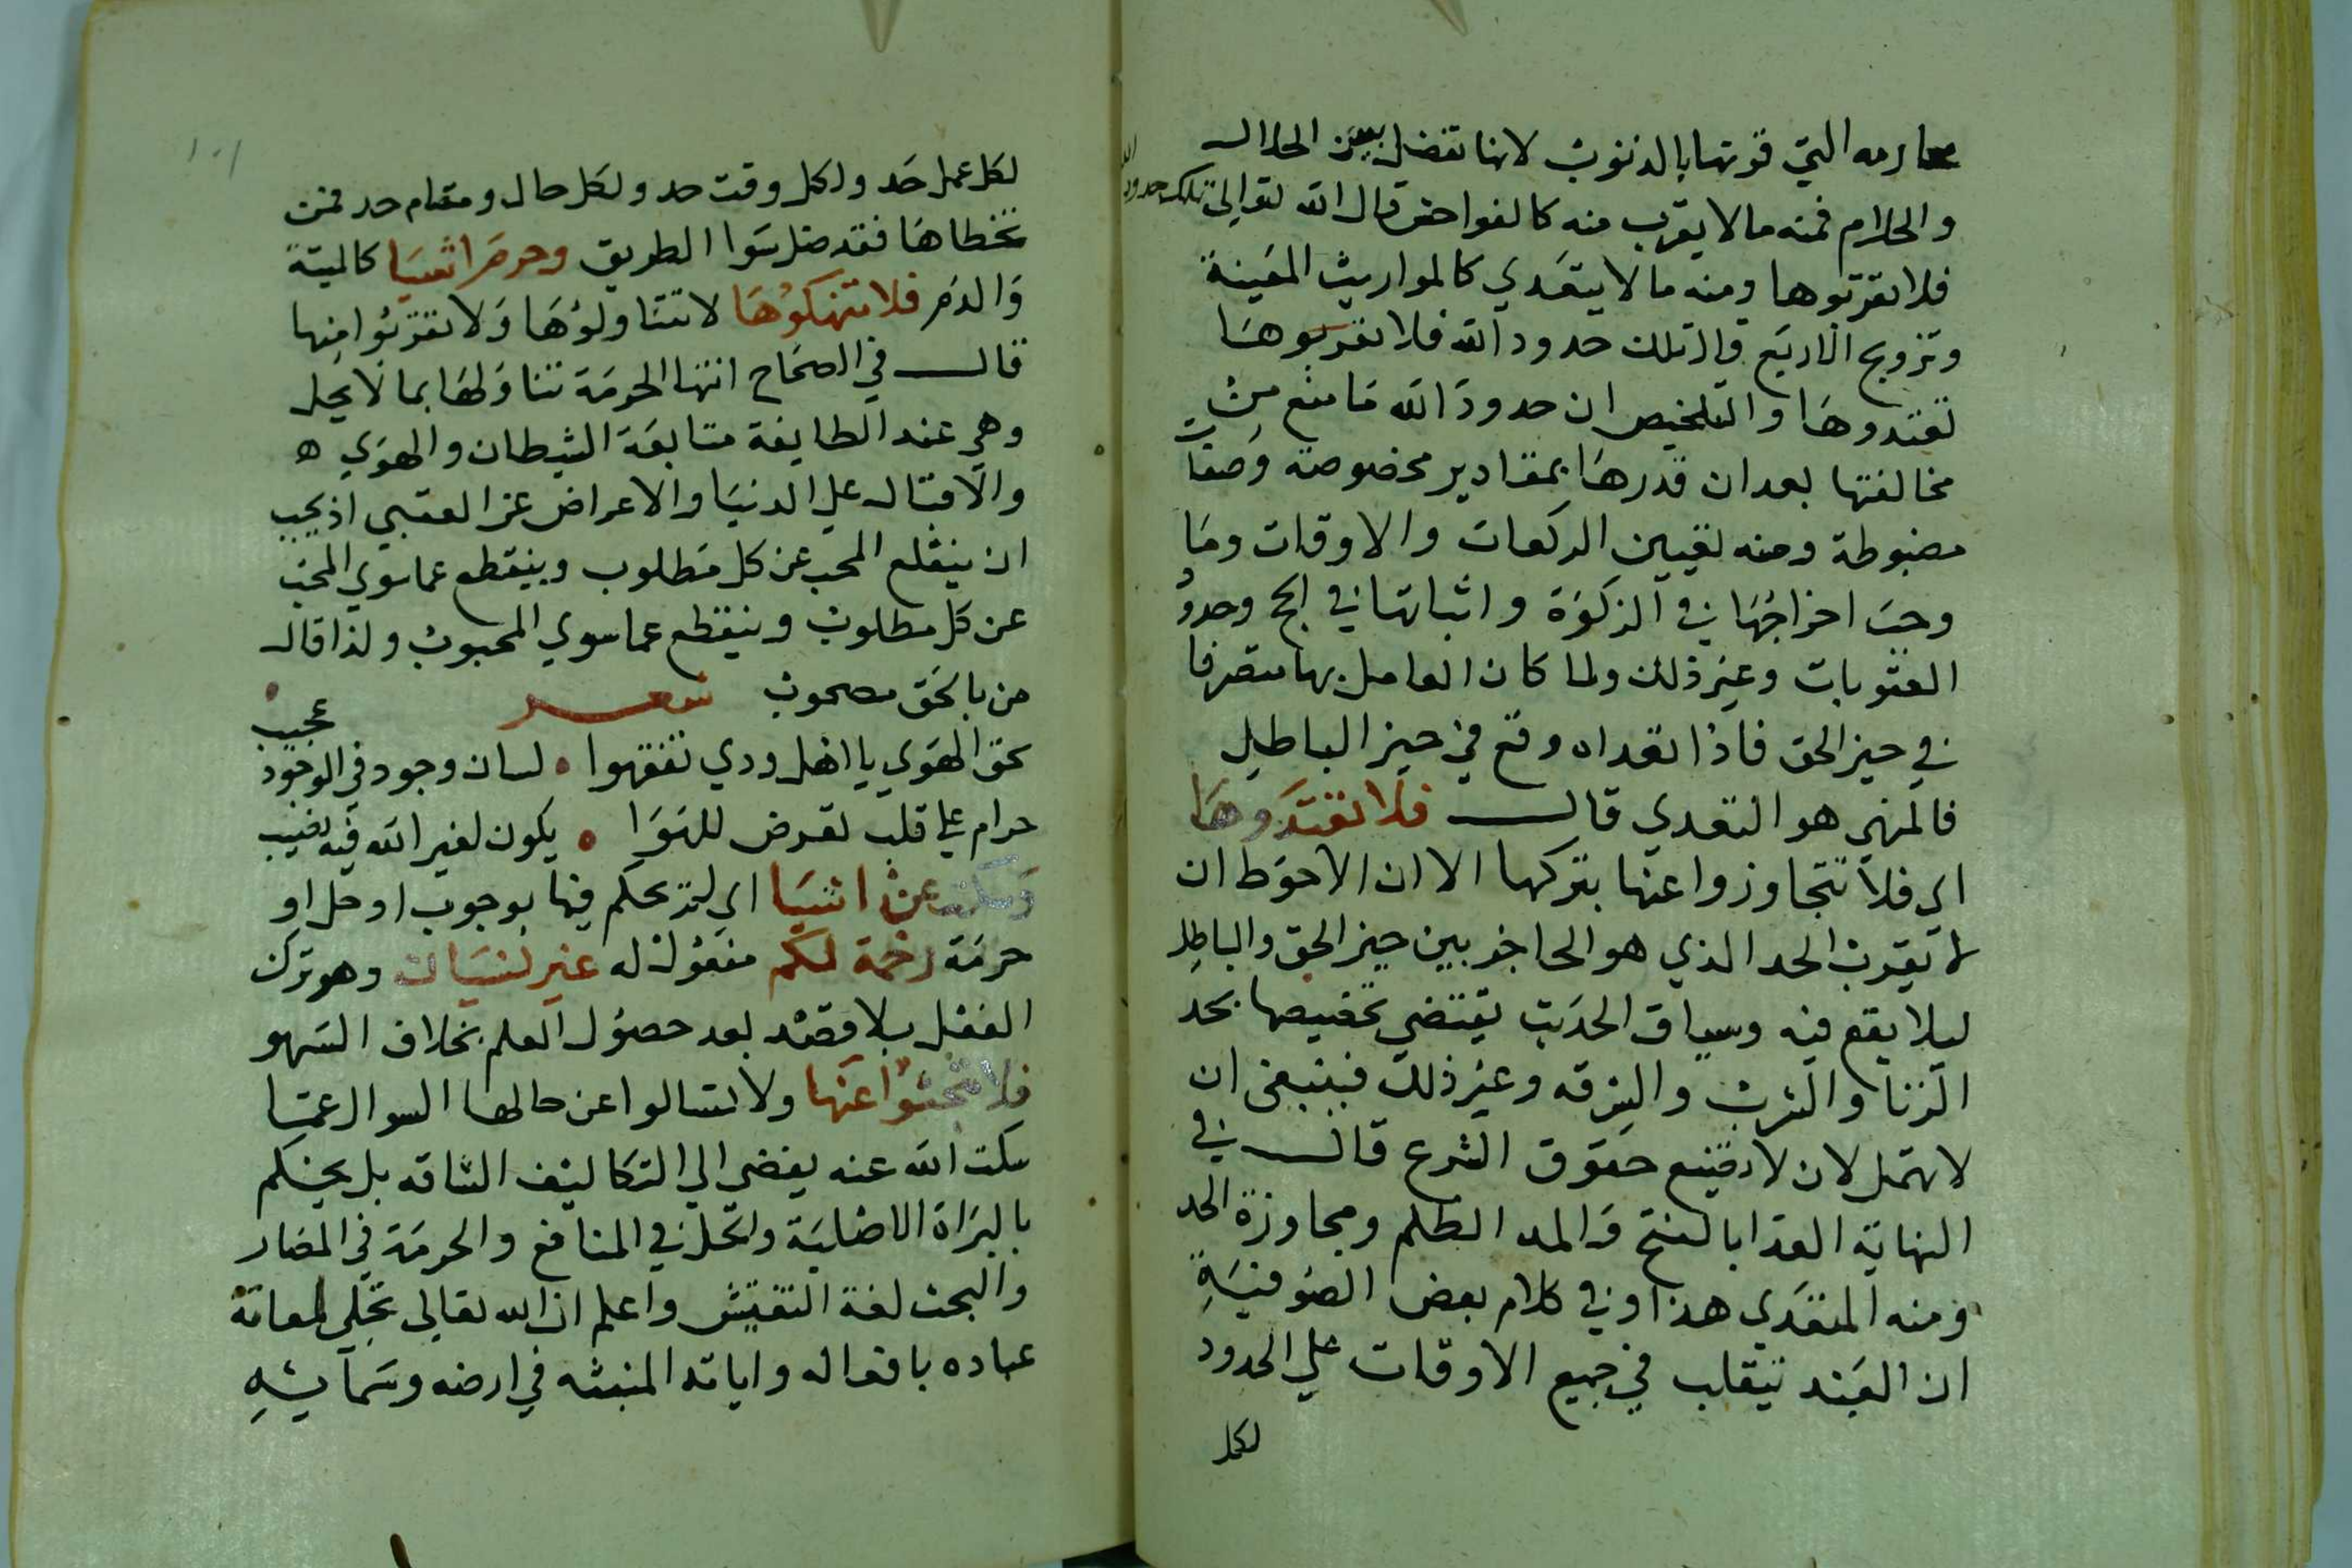 محارمه التي قرنها بالذنوب لانها تفضل بين الحلال
والحلرام فمنه ما لا يقرب منه كالفواحش قال الله تعالى تلك حدود الله
فلا تقربوها ومنه ما لا يتعدي كالمواريث المعينة
وتزويج الاربع قال تلك حدود الله فلا تقربوها
تعتدوها والتلخيص ان حدود الله ما منع من
مخالفتها بعد ان قدرها بمقادير مخصوصة وصفات
مضبوطة ومنه تعيين الركعات والاوقات وما
وجب اخراجها في الزكوة واثباتها في الحج وحدود
العقوبات وغير ذلك ولما كان العامل بها متصرفا
في حيز الحق فاذا تعداه وقع في حيز الباطل
فالمنهي هو التعدي قال فلا تعتدوها
اي فلا تتجاوزوا عنها بتركها الا ان الاحوط ان
لا يقرب الحد الذي هو الحاجز بين حيز الحق والباطل
ليلا يقع فيه وسياق الحديث يقتضي تخصيصها بحد
الزنا والشرب والسرقه وغير ذلك فينبغي ان
لا تهمل لان لا تضيع حقوق الشرع قال في
النهاية العدا بالفتح والمد الظلم ومجاوزة الحد
ومنه المتعدي هذا وفي كلام بعض الصوفية
ان العبد يتقلب في جميع الاوقات علي الحدود
لكل
لكل عمل حد ولكل وقت حد ولكل حال ومقام حد فمن
تخطاها فقد ضل سوا الطريق وحرم اشيا كالميتة
والدم فلا تنهكوها لا تتناولوها ولا تقربوا منها
قال في الصحاح انتها الحرمة تناولها بما لا يحل
وهي عند الطايفة متابعة الشيطان والهوي ه
والاقبال علي الدنيا والاعراض عن العقبي اذ يجب
ان ينقلع المحب عن كل مطلوب وينقطع عما سوي المحب
عن كل مطلوب وينقطع عما سوي المحبوب ولذا قال
من بالحق مصحوب شعر
بحق الهوي يا اهل ودي تفقهوا • لسان وجود في الوجود عجيب
حرام علي قلب تعرض للهوا • يكون لغير الله فيه نصيب
وسكت عن اشيا اي لم يحكم فيها بوجوب او حل او
حرمة رحمة لكم مفعول له غير نسيان وهو ترك
الفعل بلا قصد بعد حصول العلم بخلاف السهو
فلا تبحثوا عنها ولا تسالوا عن حالها السوال عما
سكت الله عنه يفضي الي التكاليف الشاقه بل يحكم
بالبراة الاصلية والحل في المنافع والحرمة في المضار
والبحث لغة التفتيش واعلم ان الله تعالي تجلي لعامة
عباده بافعاله واياته المنبثه في ارضه وسمآيه